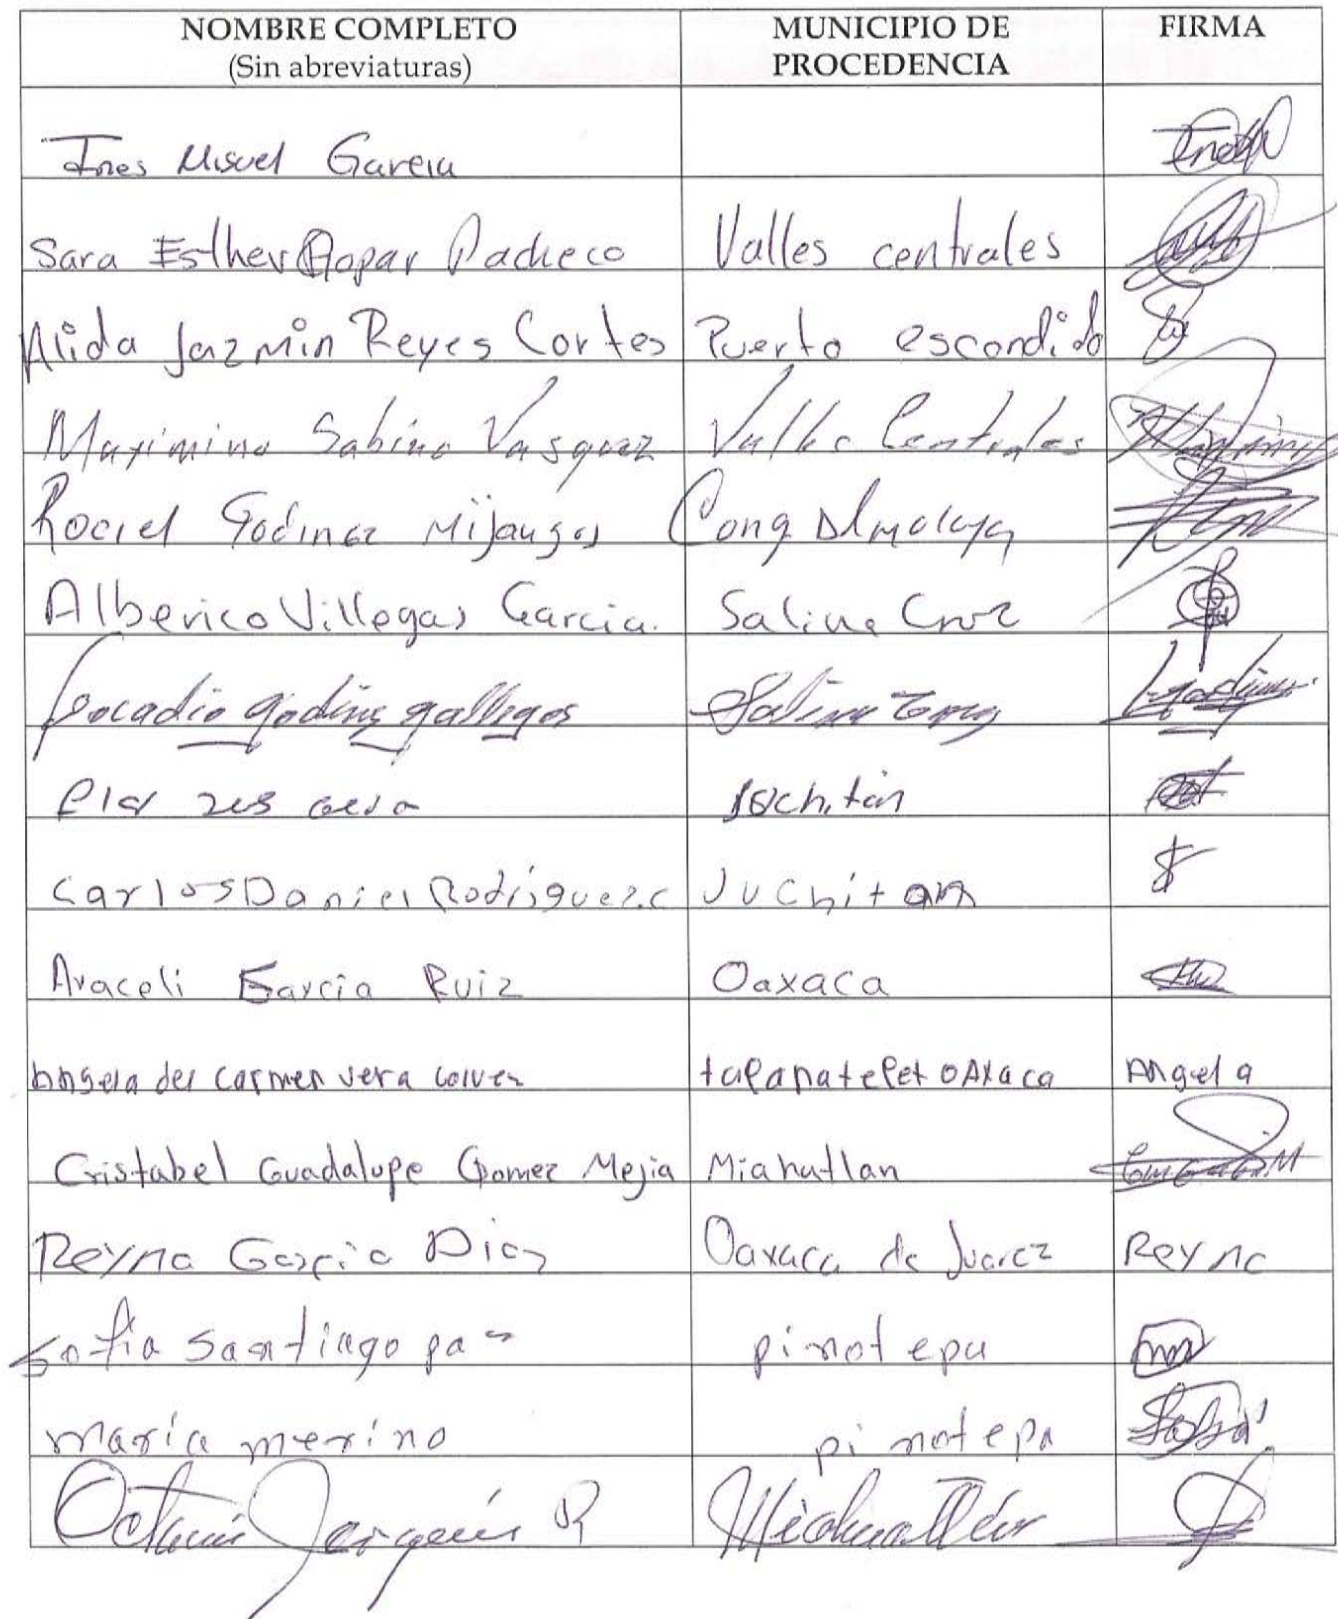 NOMBRE COMPLETO
(Sin abreviaturas)
MUNICIPIO DE
PROCEDENCIA
FIRMA
Ines Miguel Garcia Ines
Sara Esther Ropar Pacheco Valles centrales
Alida Jazmin Reyes Cortes Puerto escondido
Maximino Sabino Vasquez Valles Centrales
Rociel Godinez Mijangos Cong Almoloya
Alberico Villegas Garcia. Salina Cruz
Locadio godinez gallegos Salina Cruz
Juchitan
Carlos Daniel Rodriguez.c Juchitan
Araceli Garcia Ruiz Oaxaca
Angela del carmen vera tapanatepet OAXaca Angela
Cristabel Guadalupe Gomez Mejia Miahutlan
Reyna Garcia Diaz Oaxaca de Juarez Reyna
Sofia santiago pinotepa
maría merino pinotepa
Octavio R Miahuatlán